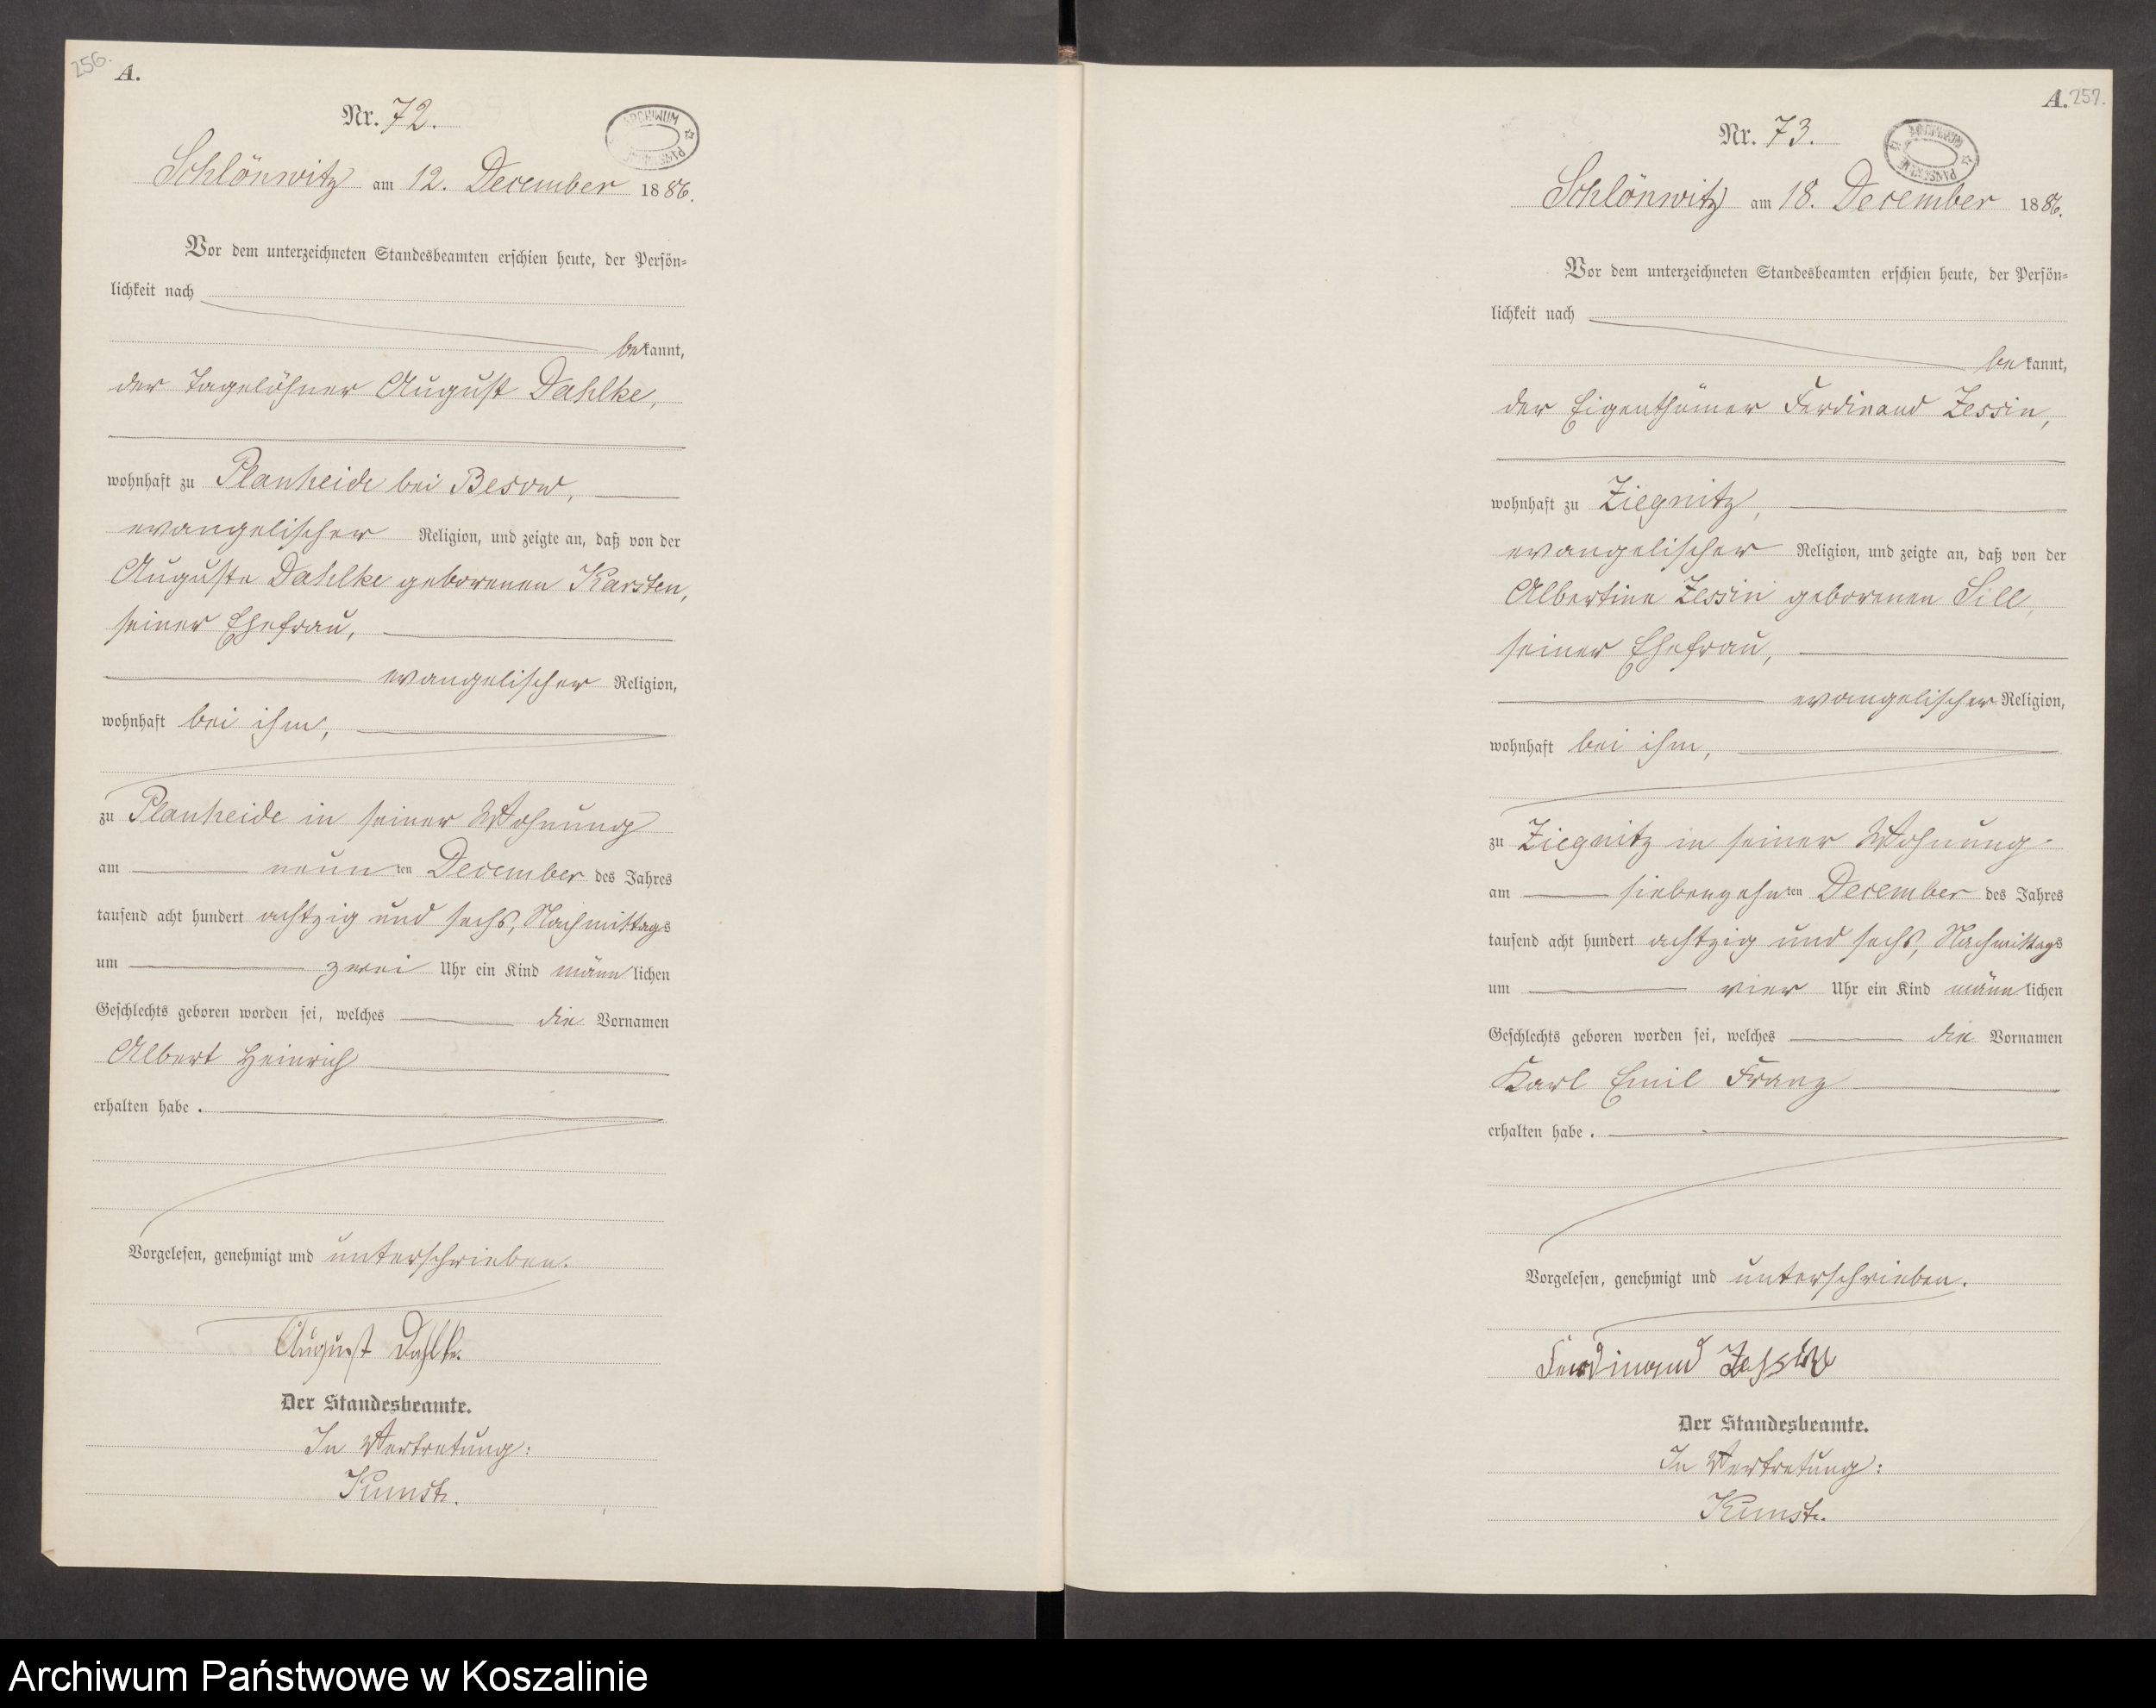 256.
A.
Nr. 72.
ARCHIWUM
Schlönwitz am 12. December 1886.
Vor dem unterzeichneten Standesbeamten erschien heute, der Persön-
lichkeit nach
bekannt,
der Tagelöhner August Dahlke,
wohnhaft zu Planheide bei Besow,
evangelischer Religion, und zeigte an, daß von der
Auguste Dahlke geborenen Karsten,
seiner Ehefrau,
evangelischer Religion,
wohnhaft bei ihm,
zu Planheide in seiner Wohnung
am neunten December des Jahres
tausend acht hundert achtzig und sechs, Nachmittags
um zwei Uhr ein Kind männlichen
Geschlechts geboren worden sei, welches die Vornamen
Albert Heinrich
erhalten habe.
Vorgelesen, genehmigt und unterschrieben.
August Dahlke.
Der Standesbeamte.
In Vertretung:
Kunst.
A. 257.
Nr. 73.
Schlönwitz am 18. December 1886.
Vor dem unterzeichneten Standesbeamten erschien heute, der Persön-
lichkeit nach
bekannt,
der Eigenthümer Ferdinand Zessin,
wohnhaft zu Ziegnitz,
evangelischer Religion, und zeigte an, daß von der
Albertine Zessin geborenen Sill,
seiner Ehefrau,
evangelischer Religion,
wohnhaft bei ihm,
zu Ziegnitz in seiner Wohnung
am siebenzehnten December des Jahres
tausend acht hundert achtzig und sechs, Nachmittags
um vier Uhr ein Kind männlichen
Geschlechts geboren worden sei, welches die Vornamen
Karl Emil Franz
erhalten habe.
Vorgelesen, genehmigt und unterschrieben.
Ferdinand Zessin
Der Standesbeamte.
In Vertretung:
Kunst.
Archiwum Państwowe w Koszalinie